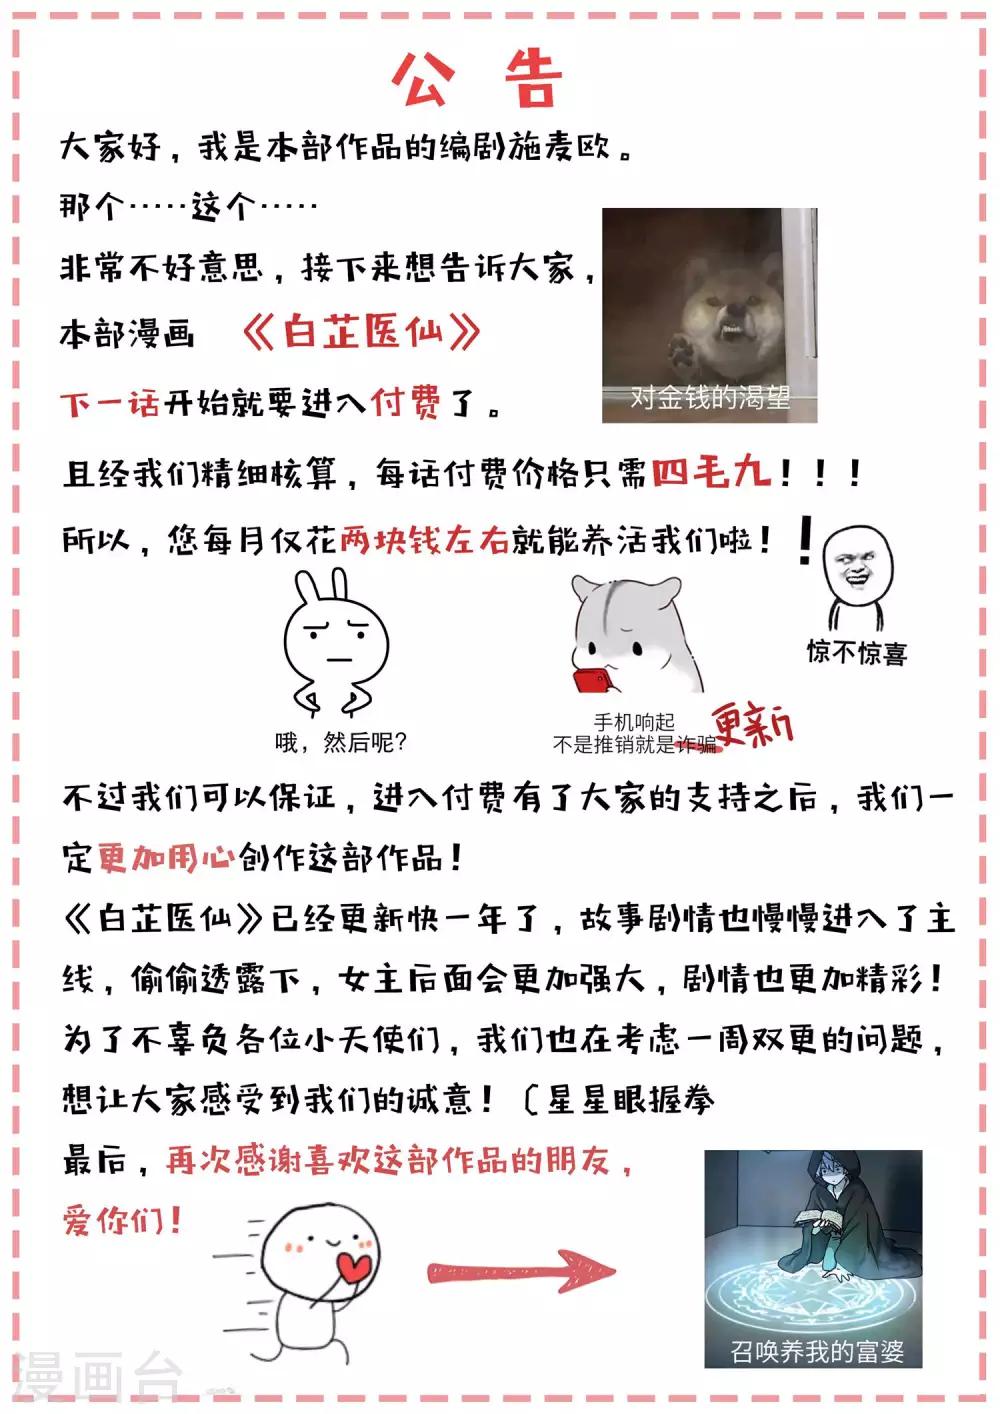 公告
大家好，我是本部作品的编剧施麦欧。
那个·····这个·····
非常不好意思，接下来想告诉大家，
本部漫画 《白芷医仙》
下一话开始就要进入付费了。
对金钱的渴望
且经我们精细核算，每话付费价格只需四毛九！！！
所以，您每月仅花两块钱左右就能养活我们啦！！
惊不惊喜
哦，然后呢？
手机响起
不是推销就是诈骗更新
不过我们可以保证，进入付费有了大家的支持之后，我们一
定更加用心创作这部作品！
《白芷医仙》已经更新快一年了，故事剧情也慢慢进入了主
线，偷偷透露下，女主后面会更加强大，剧情也更加精彩！
为了不辜负各位小天使们，我们也在考虑一周双更的问题，
想让大家感受到我们的诚意！〔星星眼握拳
最后，再次感谢喜欢这部作品的朋友，
爱你们！
召唤养我的富婆
漫画台